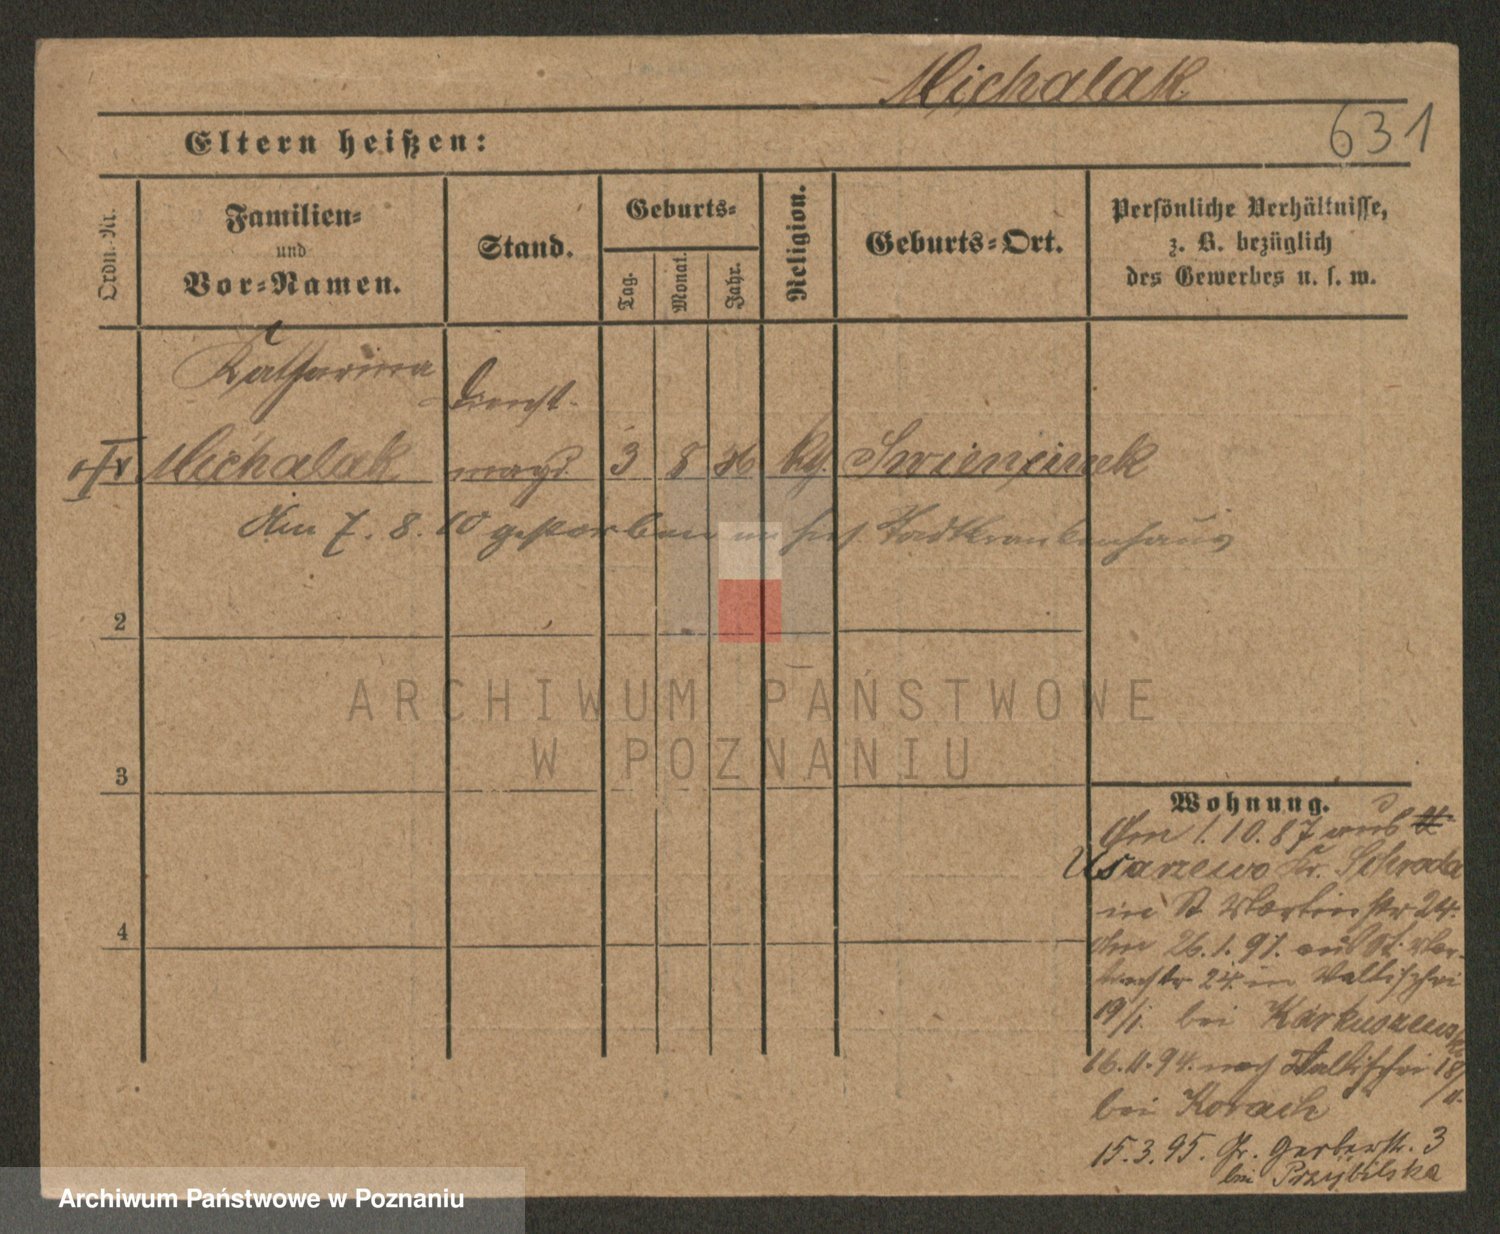 Michalak
631
Eltern heißen:
Ordn.-Nr.
Familien-
und
Vor-Namen.
Stand.
Geburts-
Tag.
Monat.
Jahr.
Religion.
Geburts-Ort.
Persönliche Verhältnisse,
z. B. bezüglich
des Gewerbes u. s. w.
Katharina
Dienst-
Michalak magd 3 8 36 kg.
den 7. 8. 10 gestorben im Stadtkrankenhaus
2
3
4
Wohnung.
Den 1. 10. 87 aus
Usarzewo Kr. Schroda
in St Martinstr 24.
den 26. 1. 91. aus St. Mar-
tinstr 24. in Wallischei
19/I. bei Karkuszewski
16. 11. 94. nach Wallischei 18/II.
bei Kovach
15. 3. 95. Gr. Gerberstr. 3
bei Przybilska
ARCHIWUM PAŃSTWOWE
W POZNANIU
Archiwum Państwowe w Poznaniu